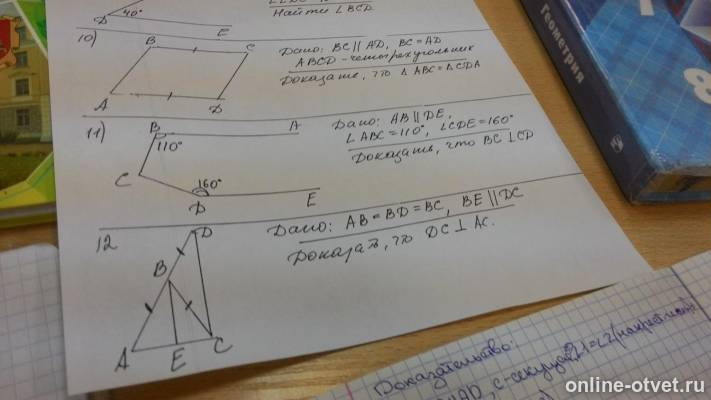 D 40° E
Найти ∠BCD.
10)
B C
A D
Дано: BC ∥ AD, BC = AD
ABCD - четырехугольник
Доказать, что △ ABC = △CDA
11)
B A
110°
C
160°
D E
Дано: AB ∥ DE,
∠ABC = 110°, ∠CDE = 160°
Доказать, что BC ⊥ CD
12
D
B
A E C
Дано: AB = BD = BC, BE ∥ DC
Доказать, что DC ⊥ AC.
Геометрия
8
Доказательство:
AD, с-секущая
online-otvet.ru